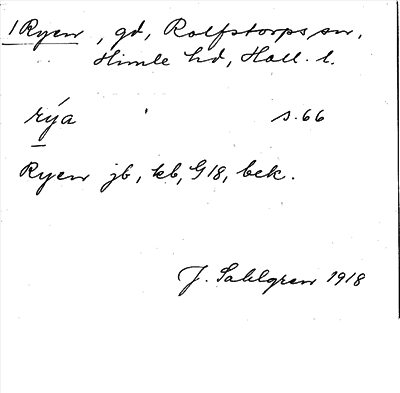 1 Ryen, gd, Rolfstorps sn,
Himle hd, Hall. l.
rýa s. 66
Ryen jb, kb, G18, bek.
J. Sahlgren 1918